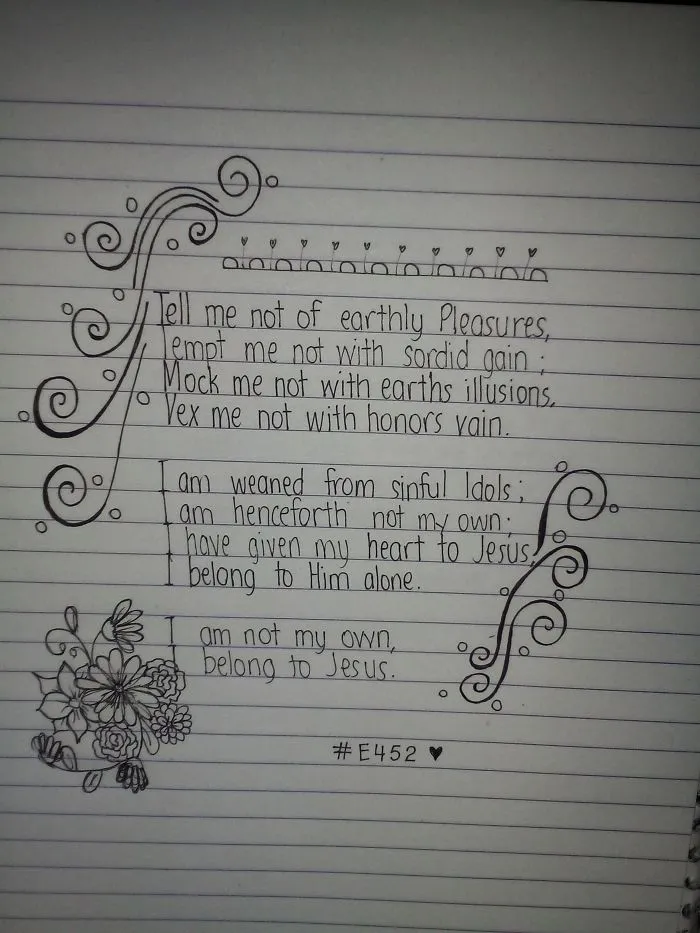 Tell me not of earthly Pleasures,
Tempt me not with sordid gain;
Mock me not with earths illusions,
Vex me not with honors vain.
I am weaned from sinful Idols;
I am henceforth not my own;
I have given my heart to Jesus,
I belong to Him alone.
I am not my own,
I belong to Jesus.
#E452 ♥